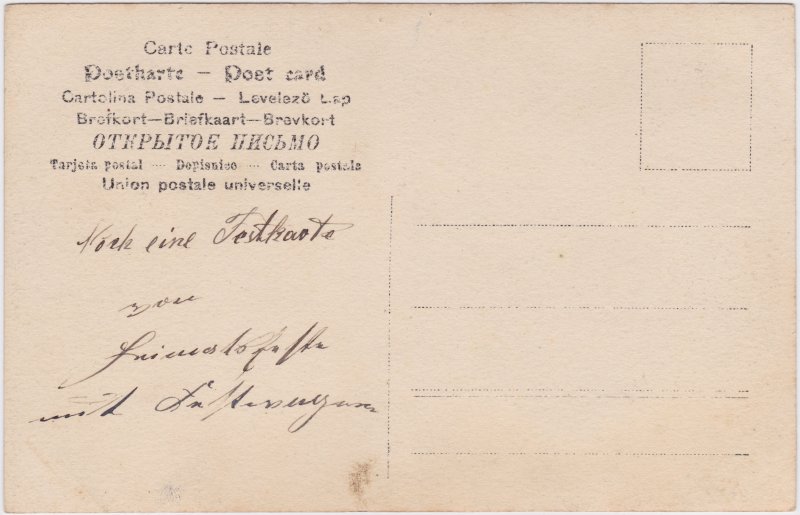 Carte Postale
Postkarte – Post card
Cartolina Postale – Levelező Lap
Brefkort—Briefkaart—Brevkort
ОТКРЫТОЕ ПИСЬМО
Tarjeta postal — Dopisnice — Carta postala
Union postale universelle
Noch eine Festkarte
von
Heimatsfeste
mit Festwagen